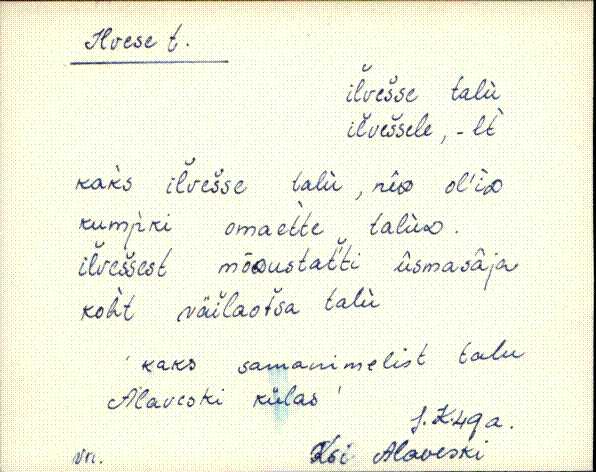 Ilvese t.
ĭlvešse talù
ĭlvešsele, -lt̀
kak̀s ĭlvešse talù, niᴅ ol'iᴅ
kumpki omaette talùᴅ.
ĭlvešsest mõᴅustatti ûsmasâja
koht talù
'kaks samanimelist talu
Alaveski külas'
J.K. 49 a.
Ksi Alaveski
vn.